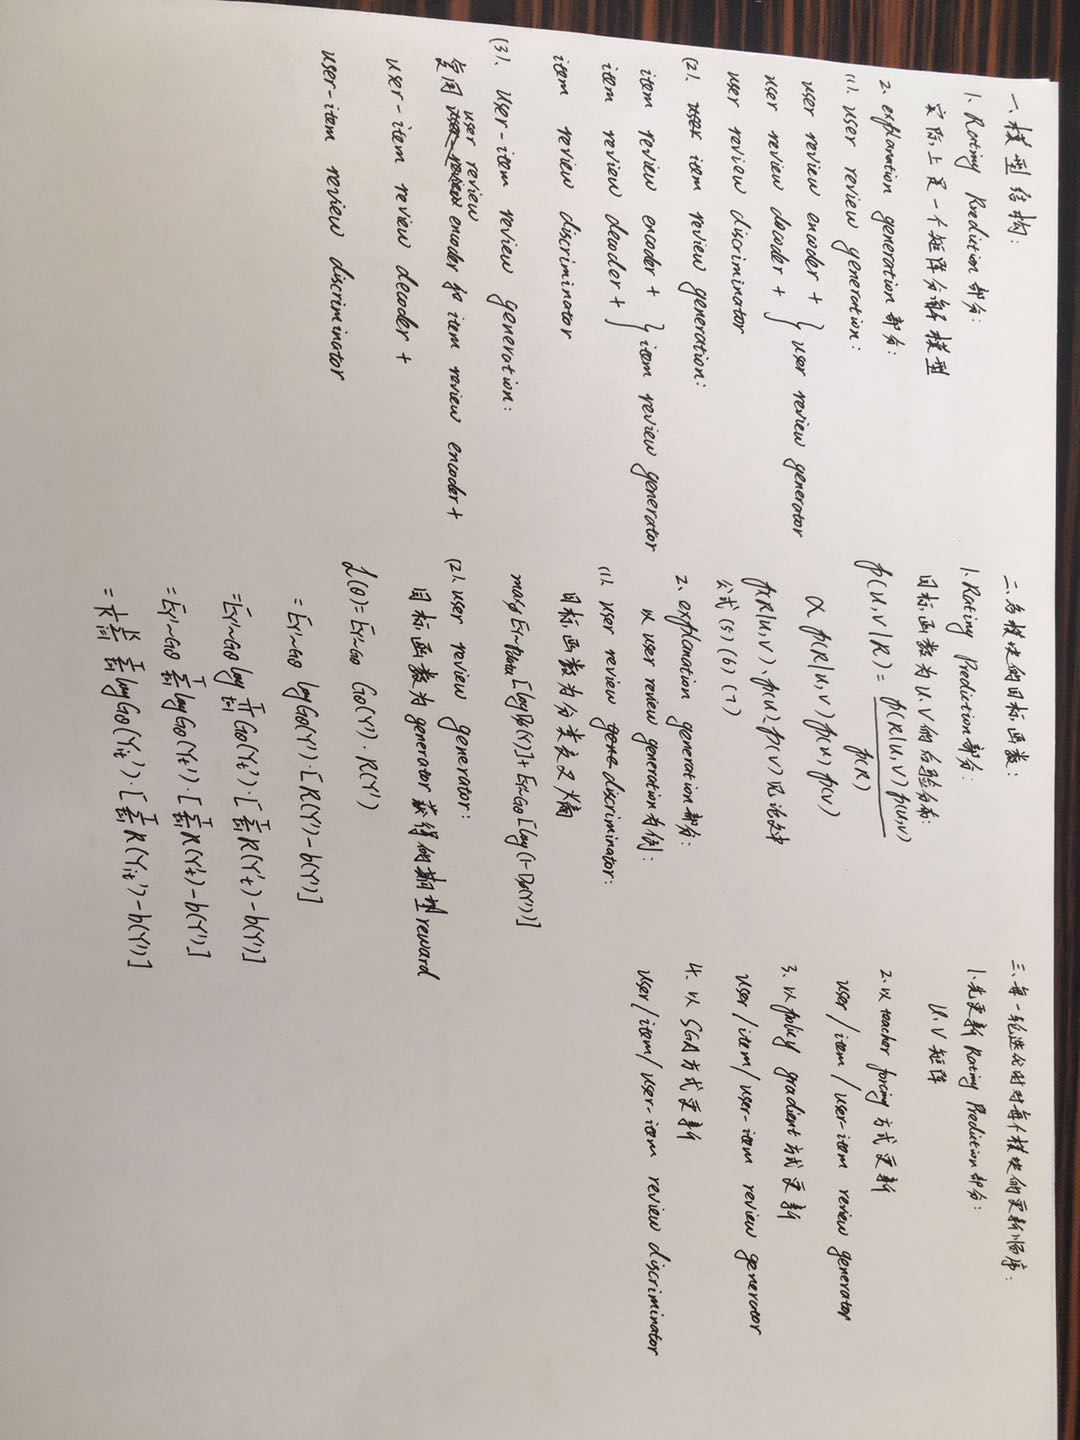 一、模型结构:
1. Rating Prediction 部分:
实际上是一个矩阵分解模型
2. explanation generation 部分:
(1). user review generation:
user review encoder +
user review decoder +
} user review generator
user review discriminator
(2). user item review generation:
item review encoder +
item review decoder +
} item review generator
item review discriminator
(3). user-item review generation:
user review
复用 user review encoder 和 item review encoder +
user-item review decoder +
user-item review discriminator
二、各模块的目标函数:
1. Rating Prediction 部分:
目标函数为 U、V 的后验分布:
p(U,V|R) = p(R|U,V) p(U,V) / p(R)
∝ p(R|U,V) p(U) p(V)
p(R|U,V)、p(U)、p(V) 见论文中
公式 (5) (6) (7)
2. explanation generation 部分:
以 user review generation 为例:
(1). user review gene discriminator:
目标函数为分类交叉熵
maxφ EY~Pdata [logDφ(Y)] + EY'~Gθ [log(1-Dφ(Y'))]
(2). user review generator:
目标函数为 generator 获得的期望 reward
L(θ) = EY'~Gθ Gθ(Y') · R(Y')
= EY'~Gθ logGθ(Y') · [R(Y') - b(Y')]
= EY'~Gθ log ∏_{t=1}^{T} Gθ(Yt') · [∑_{t=1}^{T} R(Y't) - b(Y')]
= EY'~Gθ ∑_{t=1}^{T} logGθ(Yt') · [∑_{t=1}^{T} R(Y't) - b(Y')]
= 1/K ∑_{i=1}^{K} ∑_{t=1}^{T} logGθ(Yit') · [∑_{t=1}^{T} R(Yit') - b(Y')]
三、每一轮迭代时对每个模块的更新顺序:
1. 先更新 Rating Prediction 部分:
U、V 矩阵
2. 以 teacher forcing 方式更新
user / item / user-item review generator
3. 以 policy gradient 方式更新
user / item / user-item review generator
4. 以 SGA 方式更新
user / item / user-item review discriminator